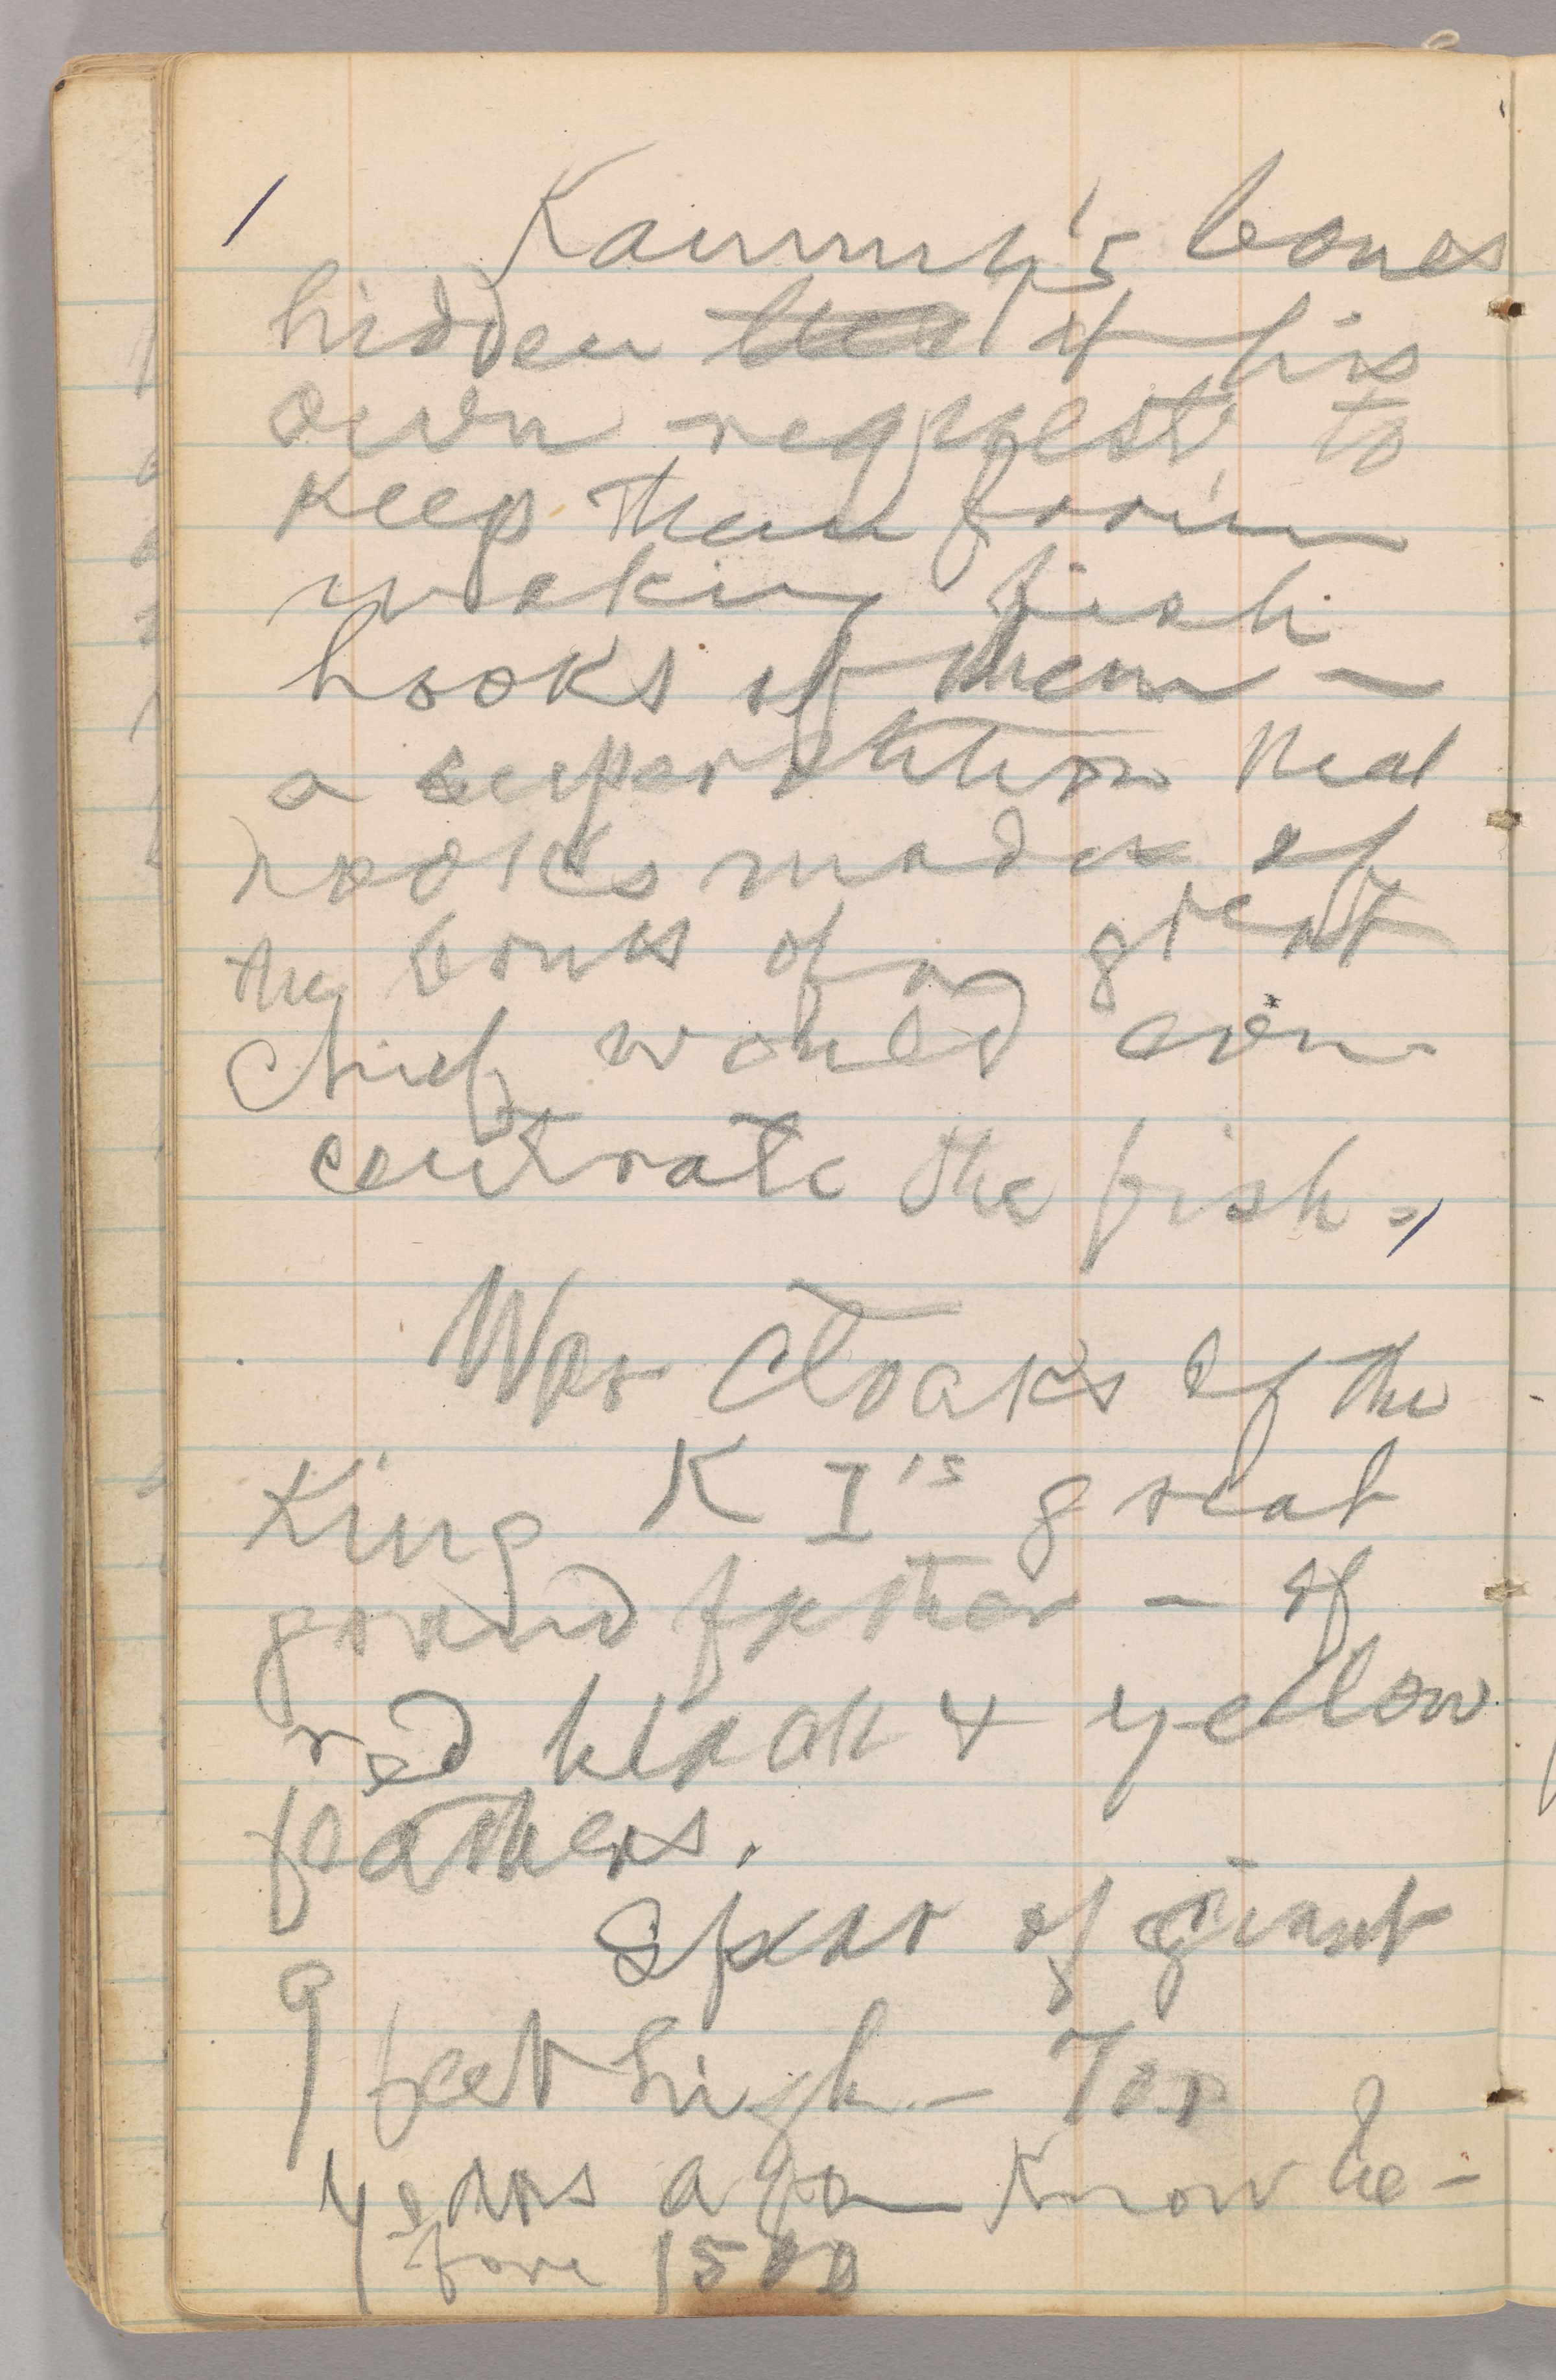 / Kammy's bones
hidden at his
own request, to
keep them from
making fish
hooks of them —
a superstition that
hooks made of
the bones of a great
chief would con-
centrate the fish. /
War Cloaks of the
King K I's great
grandfather — of
red black & yellow
feathers.
Spear of giant
9 feet high. —
years ago — Know be-
fore 1500